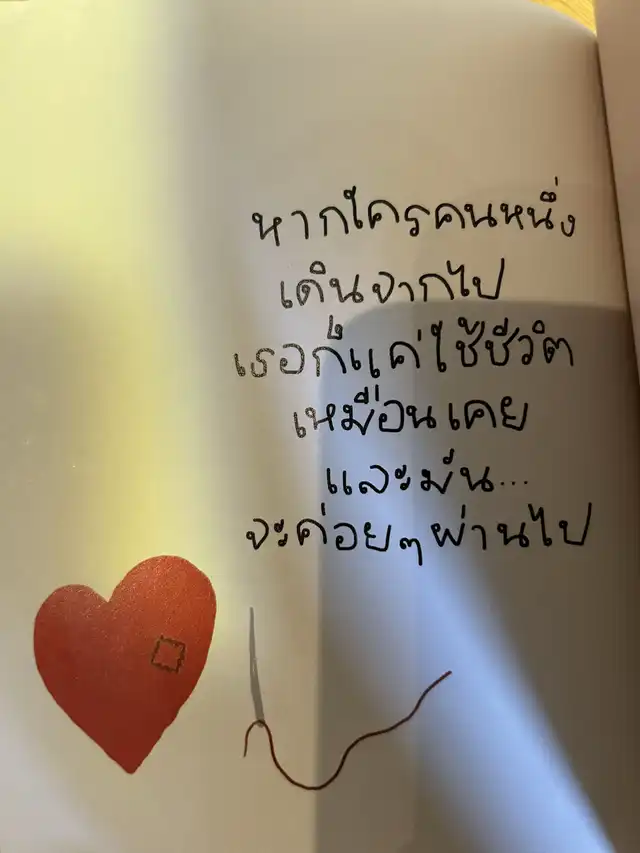 หากใครคนหนึ่ง
เดินจากไป
เธอก็แค่ใช้ชีวิต
เหมือนเคย
และมัน...
จะค่อยๆผ่านไป